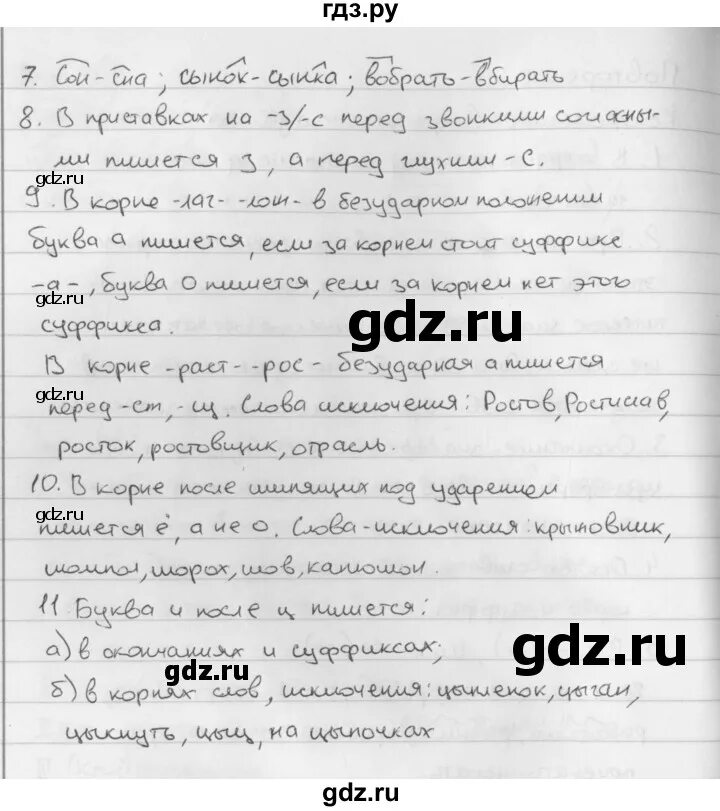 гдз.ру
7. Сон - сна; сынок - сынка; вобрать - вбирать
8. В приставках на -з/-с перед звонкими согласны-
ми пишется з, а перед глухими - с.
gdz.ru
9. В корне -лаг- -лож- в безударном положении
буква а пишется, если за корнем стоит суффикс
-а-, буква о пишется, если за корнем нет этого
gdz.ru
gdz.ru
суффикса.
В корне -раст- -рос- безударная а пишется
gdz.ru
перед -ст, -щ. Слова исключения: Ростов, Ростислав,
росток, ростовщик, отрасль.
10. В корне после шипящих под ударением
gdz.ru
пишется ё, а не о. Слова-исключения: крыжовник,
шомпол, шорох, шов, капюшон.
11 Буква и после ц пишется:
а) в окончаниях и суффиксах;
gdz.ru
gdz.ru
б) в корнях слов, исключения: цыпленок, цыган,
цыкнуть, цыц, на цыпочках
gdz.ru